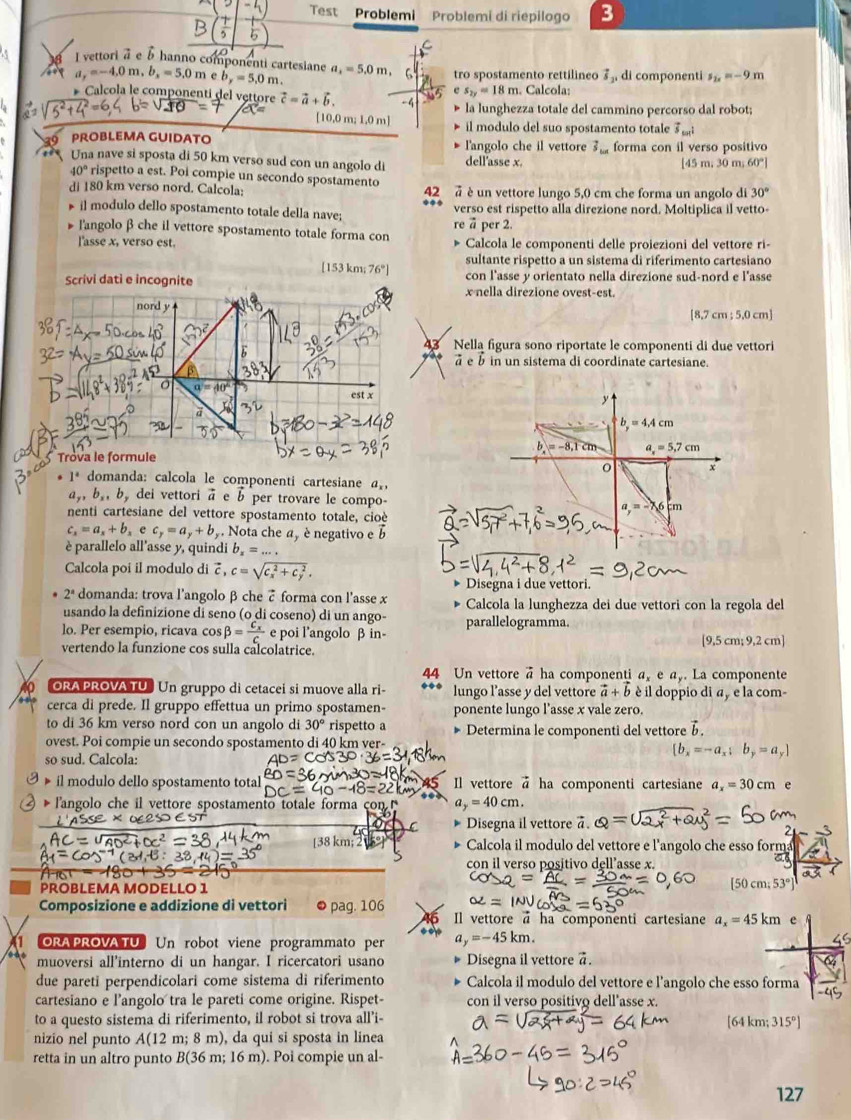 Test Problemi Problemi di riepilogo 3
38 I vettori a⃗ e b⃗ hanno componenti cartesiane aₓ = 5,0 m,
a_y = −4,0 m, bₓ = 5,0 m e b_y = 5,0 m.
▸ Calcola le componenti del vettore c⃗ = a⃗ + b⃗.
[10,0 m; 1,0 m]
39 PROBLEMA GUIDATO
Una nave si sposta di 50 km verso sud con un angolo di
40° rispetto a est. Poi compie un secondo spostamento
di 180 km verso nord. Calcola:
▸ il modulo dello spostamento totale della nave;
▸ l'angolo β che il vettore spostamento totale forma con
l'asse x, verso est.
[153 km; 76°]
Scrivi dati e incognite
nord y
38,5 = Aₓ = 50·cos 40°
32 = A_y = 50 sin 40°
β
O
α = 40°
a⃗
b⃗
est x
148
38,5
32
b = 180 − 32 = 148
bx = ax = 38,5
Trova le formule
• 1ª domanda: calcola le componenti cartesiane aₓ,
a_y, bₓ, b_y dei vettori a⃗ e b⃗ per trovare le compo-
nenti cartesiane del vettore spostamento totale, cioè
cₓ = aₓ + bₓ e c_y = a_y + b_y. Nota che a_y è negativo e b⃗
è parallelo all'asse y, quindi bₓ = ... .
Calcola poi il modulo di c⃗, c = √(cₓ² + c_y²).
• 2ª domanda: trova l'angolo β che c⃗ forma con l'asse x
usando la definizione di seno (o di coseno) di un ango-
lo. Per esempio, ricava cos β = cₓ/c e poi l'angolo β in-
vertendo la funzione cos sulla calcolatrice.
40 ORA PROVA TU Un gruppo di cetacei si muove alla ri-
cerca di prede. Il gruppo effettua un primo spostamen-
to di 36 km verso nord con un angolo di 30° rispetto a
ovest. Poi compie un secondo spostamento di 40 km ver-
so sud. Calcola:
AD = cos30·36 = 31,18km
▸ il modulo dello spostamento total
BD = 36 sin30 = 18km
DC = 40 − 18 = 22km
▸ l'angolo che il vettore spostamento totale forma con
L'ASSE X VERSO EST
AC = √AD² + DC² = 38,14 km
[38 km; 215°]
A₁ = COS⁻¹ (31,18 : 38,14) = 35°
ATOT = 180 + 35 = 215°
PROBLEMA MODELLO 1
Composizione e addizione di vettori pag. 106
41 ORA PROVA TU Un robot viene programmato per
muoversi all'interno di un hangar. I ricercatori usano
due pareti perpendicolari come sistema di riferimento
cartesiano e l'angolo tra le pareti come origine. Rispet-
to a questo sistema di riferimento, il robot si trova all'i-
nizio nel punto A(12 m; 8 m), da qui si sposta in linea
retta in un altro punto B(36 m; 16 m). Poi compie un al-
tro spostamento rettilineo s⃗₂, di componenti s₂ₓ = −9 m
e s₂y = 18 m. Calcola:
▸ la lunghezza totale del cammino percorso dal robot;
▸ il modulo del suo spostamento totale s⃗tot;
▸ l'angolo che il vettore s⃗tot forma con il verso positivo
dell'asse x.
[45 m; 30 m; 60°]
42 a⃗ è un vettore lungo 5,0 cm che forma un angolo di 30°
verso est rispetto alla direzione nord. Moltiplica il vetto-
re a⃗ per 2.
▸ Calcola le componenti delle proiezioni del vettore ri-
sultante rispetto a un sistema di riferimento cartesiano
con l'asse y orientato nella direzione sud-nord e l'asse
x nella direzione ovest-est.
[8,7 cm ; 5,0 cm]
43 Nella figura sono riportate le componenti di due vettori
a⃗ e b⃗ in un sistema di coordinate cartesiane.
y
b_y = 4,4 cm
bₓ = −8,1 cm
aₓ = 5,7 cm
O
x
a_y = −7,6 cm
a⃗ = √5,7² + 7,6² = 9,5 cm
b⃗ = √4,4² + 8,1² = 9,2 cm
▸ Disegna i due vettori.
▸ Calcola la lunghezza dei due vettori con la regola del
parallelogramma.
[9,5 cm; 9,2 cm]
44 Un vettore a⃗ ha componenti aₓ e a_y. La componente
lungo l'asse y del vettore a⃗ + b⃗ è il doppio di a_y e la com-
ponente lungo l'asse x vale zero.
▸ Determina le componenti del vettore b⃗.
[bₓ = −aₓ; b_y = a_y]
45 Il vettore a⃗ ha componenti cartesiane aₓ = 30 cm e
a_y = 40 cm.
▸ Disegna il vettore a⃗. a = √ax² + ay² = 50 cm
▸ Calcola il modulo del vettore e l'angolo che esso forma
con il verso positivo dell'asse x.
cos a = AC/AB = 30m/50m = 0,60
[50 cm; 53°]
α = INV cos a = 53°
46 Il vettore a⃗ ha componenti cartesiane aₓ = 45 km e
a_y = −45 km.
▸ Disegna il vettore a⃗.
▸ Calcola il modulo del vettore e l'angolo che esso forma
con il verso positivo dell'asse x.
a = √ax² + ay² = 64 km
[64 km; 315°]
Â = 360 − 45 = 315°
↳ 90:2 = 45°
127